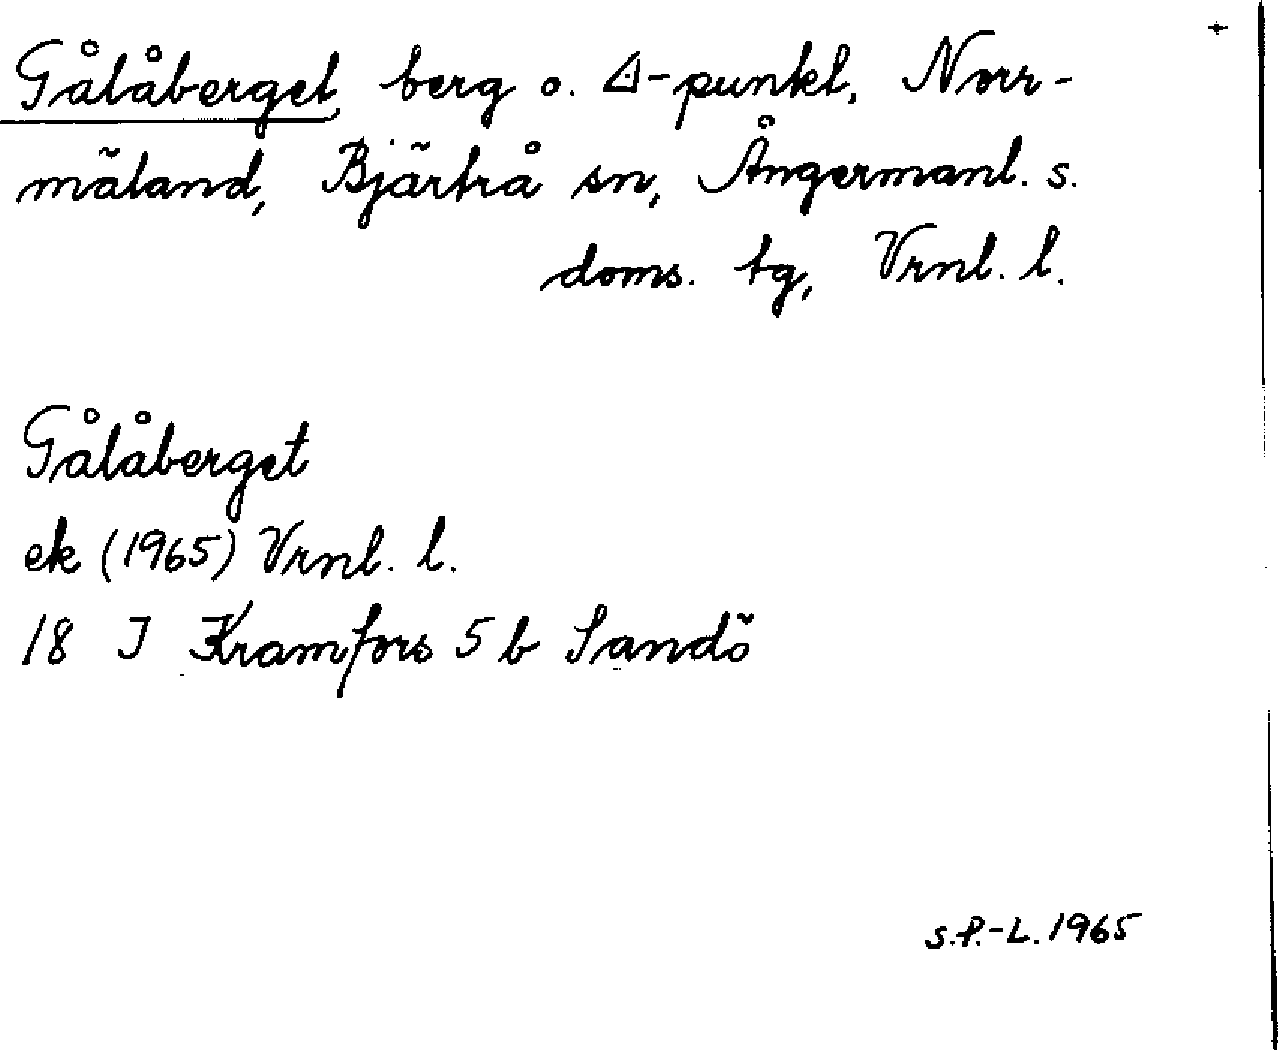 Gålåberget, berg o. △-punkt, Norr-
mäland, Bjärtrå sn, Ångermanl. s.
doms. tg, Vrnl. l.
Gålåberget
ek (1965) Vrnl. l.
18 I Kramfors 5 b Sandö
S.P.-L. 1965